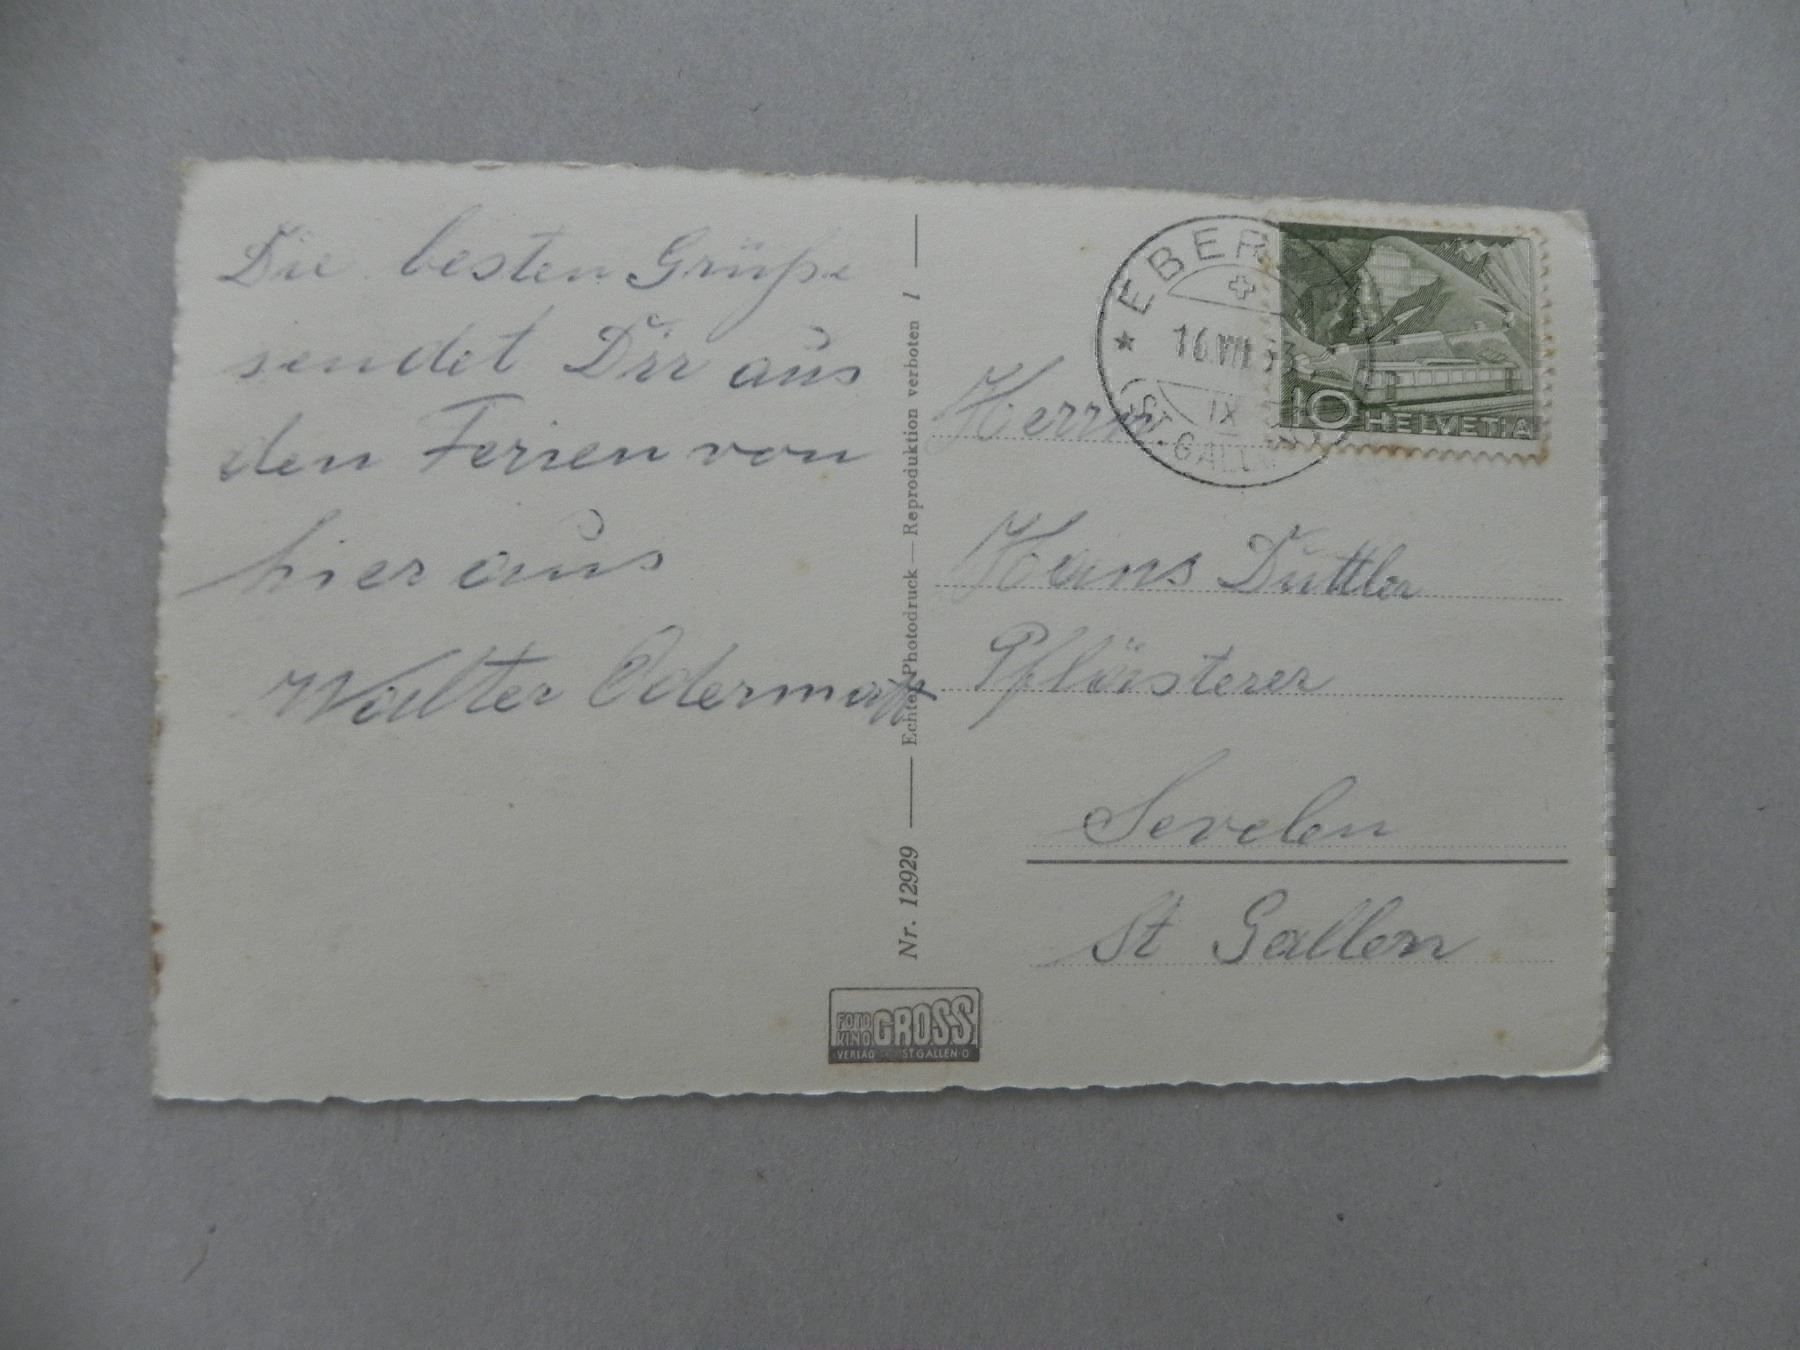 Die besten Grüße
sendet Dir aus
den Ferien von
hier aus
Walter Odermatt
Nr. 12929 — Echter Photodruck — Reproduktion verboten l
FOTO KINO GROSS
VERLAG ST GALLEN-O
16.VII.53
IX
ST. GALLEN
10 HELVETIA
Herrn
Hans Duttler
Pfläisterer
Sevelen
St Gallen